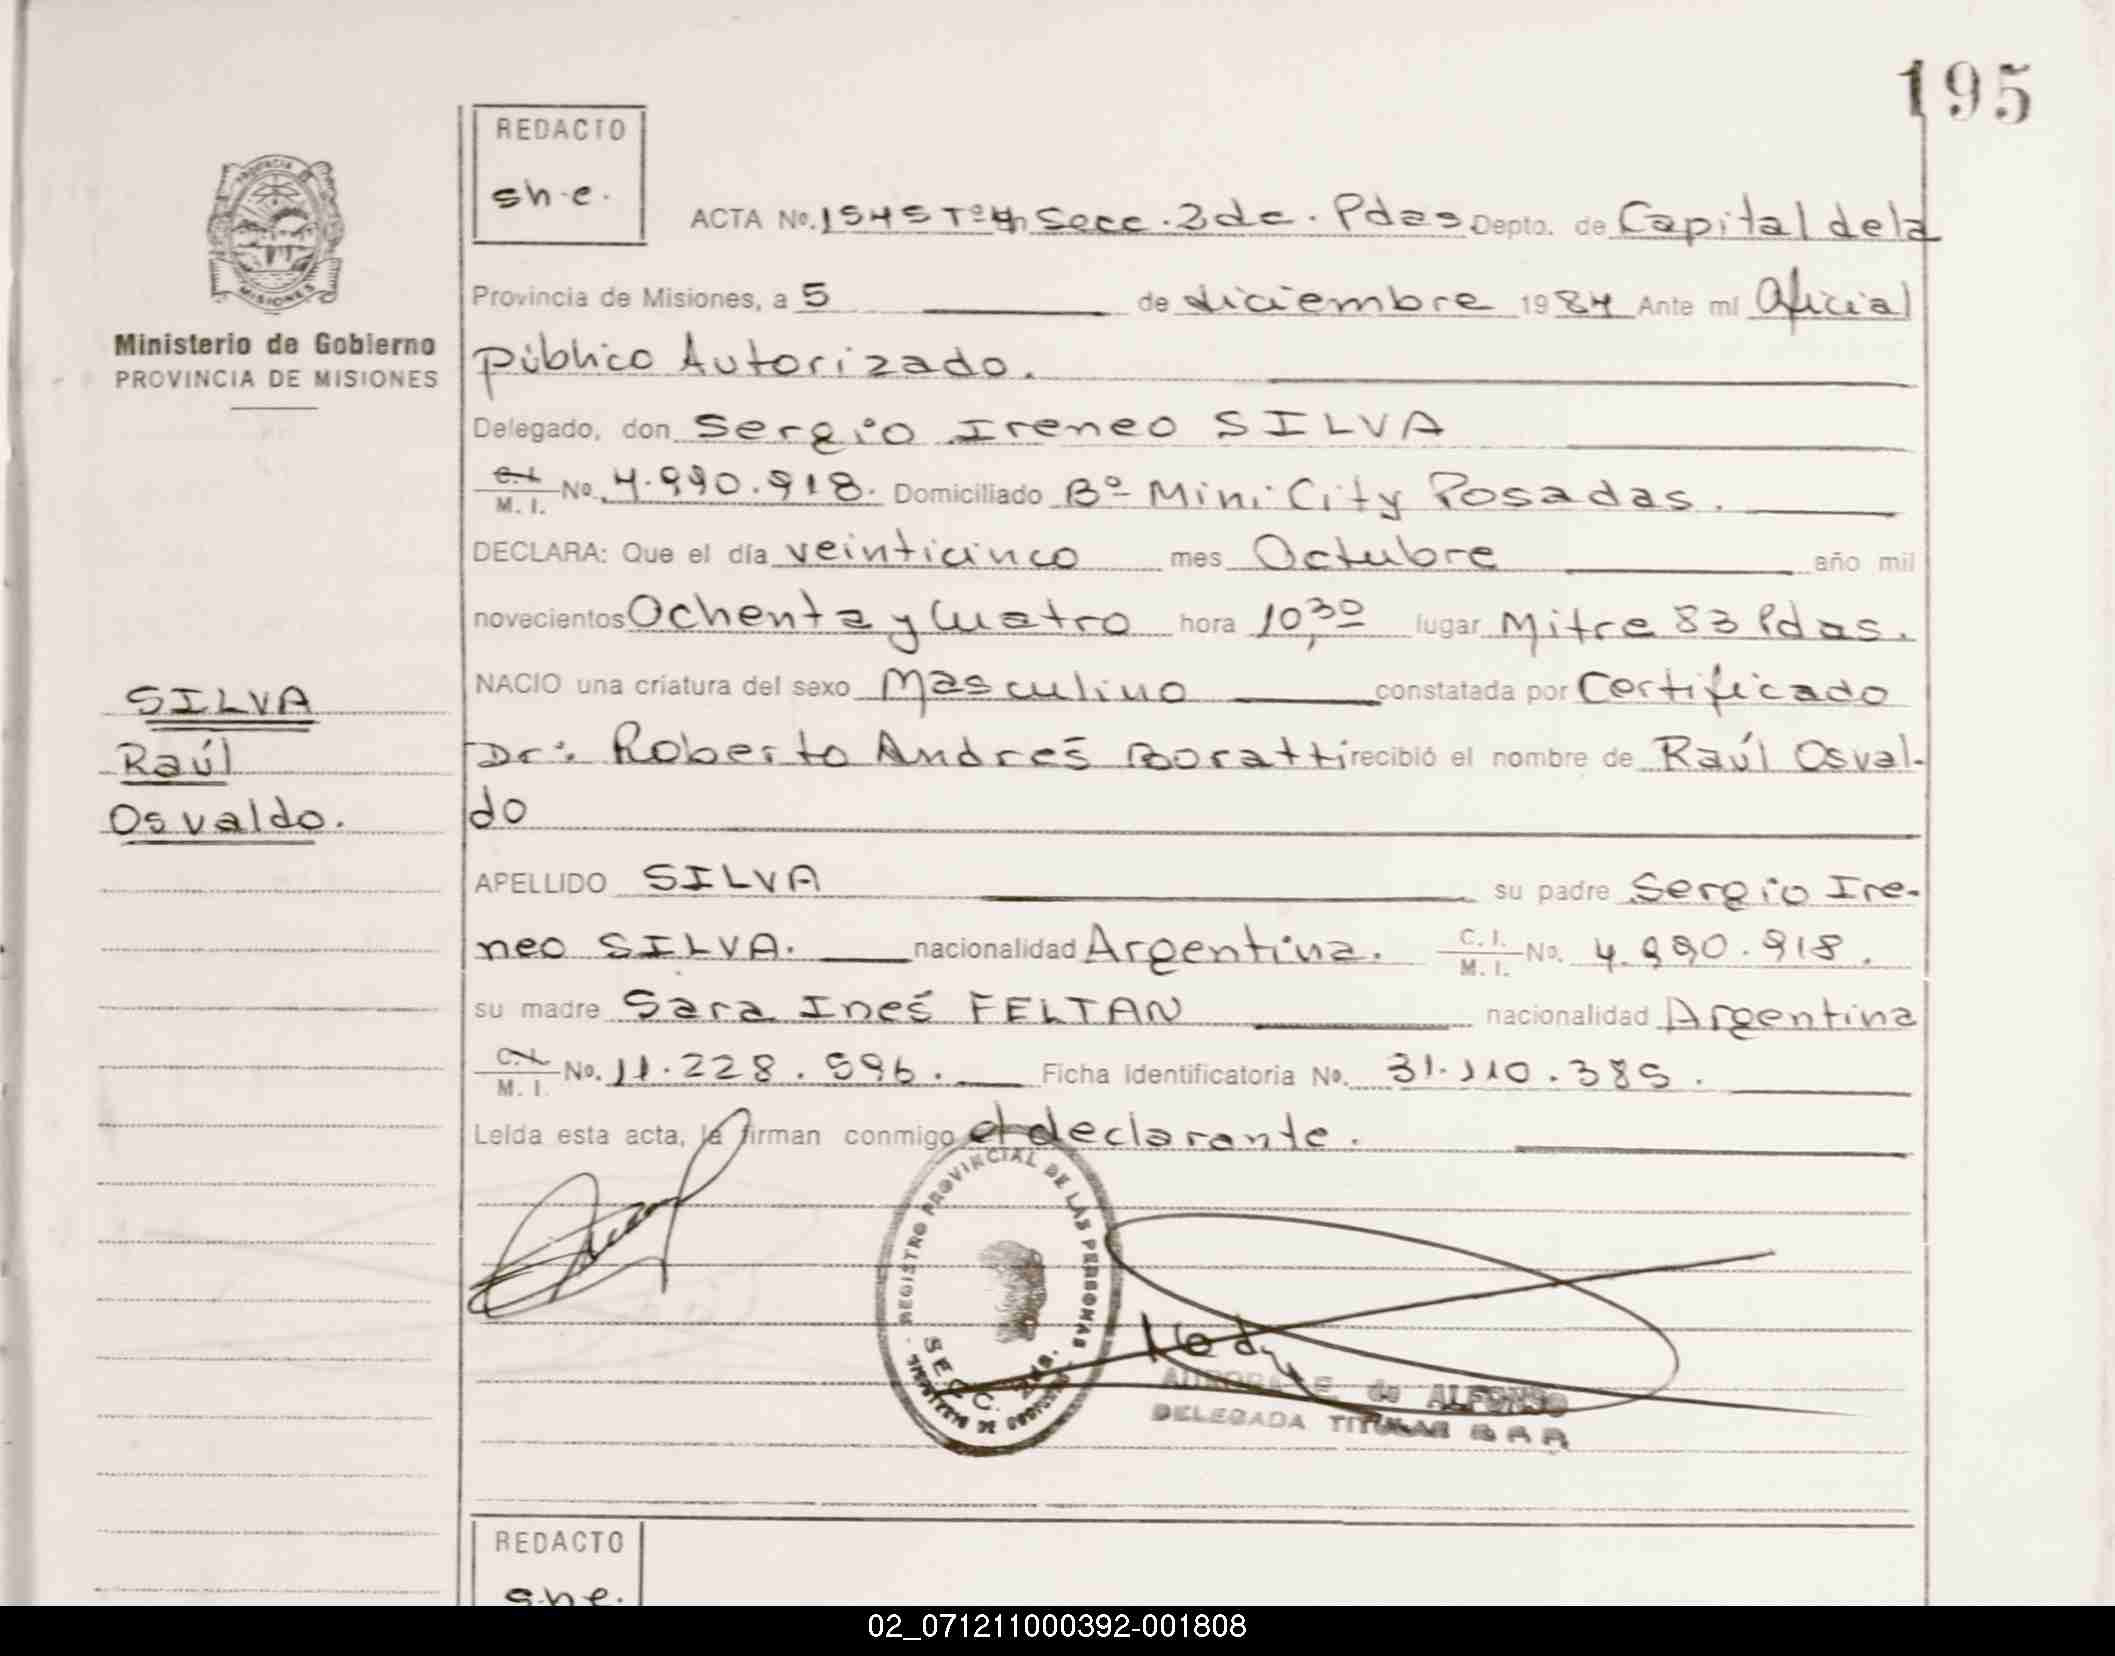 195
REDACTO
sh.e.
ACTA No. 1545 Tº 4 Secc. 2da. Pdas Depto. de Capital de la
Provincia de Misiones, a 5 de diciembre 1984 Ante mí Oficial
Público Autorizado.
PROVINCIA
MISIONES
Ministerio de Gobierno
PROVINCIA DE MISIONES
Delegado, don Sergio Ireneo SILVA
C.I. M. I. No. 4.990.918. Domiciliado Bº Mini City Posadas.
DECLARA: Que el día veinticinco mes Octubre año mil
novecientos Ochenta y Cuatro hora 10,30 lugar Mitre 83 Pdas.
NACIO una criatura del sexo Masculino constatada por Certificado
Dr: Roberto Andrés Boratti recibió el nombre de Raúl Osval-
do
SILVA
Raúl
Osvaldo.
APELLIDO SILVA su padre Sergio Ire-
neo SILVA. nacionalidad Argentina. C. I. M. I. No. 4.990.918.
su madre Sara Inés FELTAN nacionalidad Argentina
C. I. M. I. No. 11.228.596. Ficha Identificatoria No. 31.110.385.
Leída esta acta, la firman conmigo el declarante.
REGISTRO PROVINCIAL DE LAS PERSONAS
SECC. 2da.
de ALFONSO
DELEGADA TITULAR
REDACTO
sh.e.
02_071211000392-001808